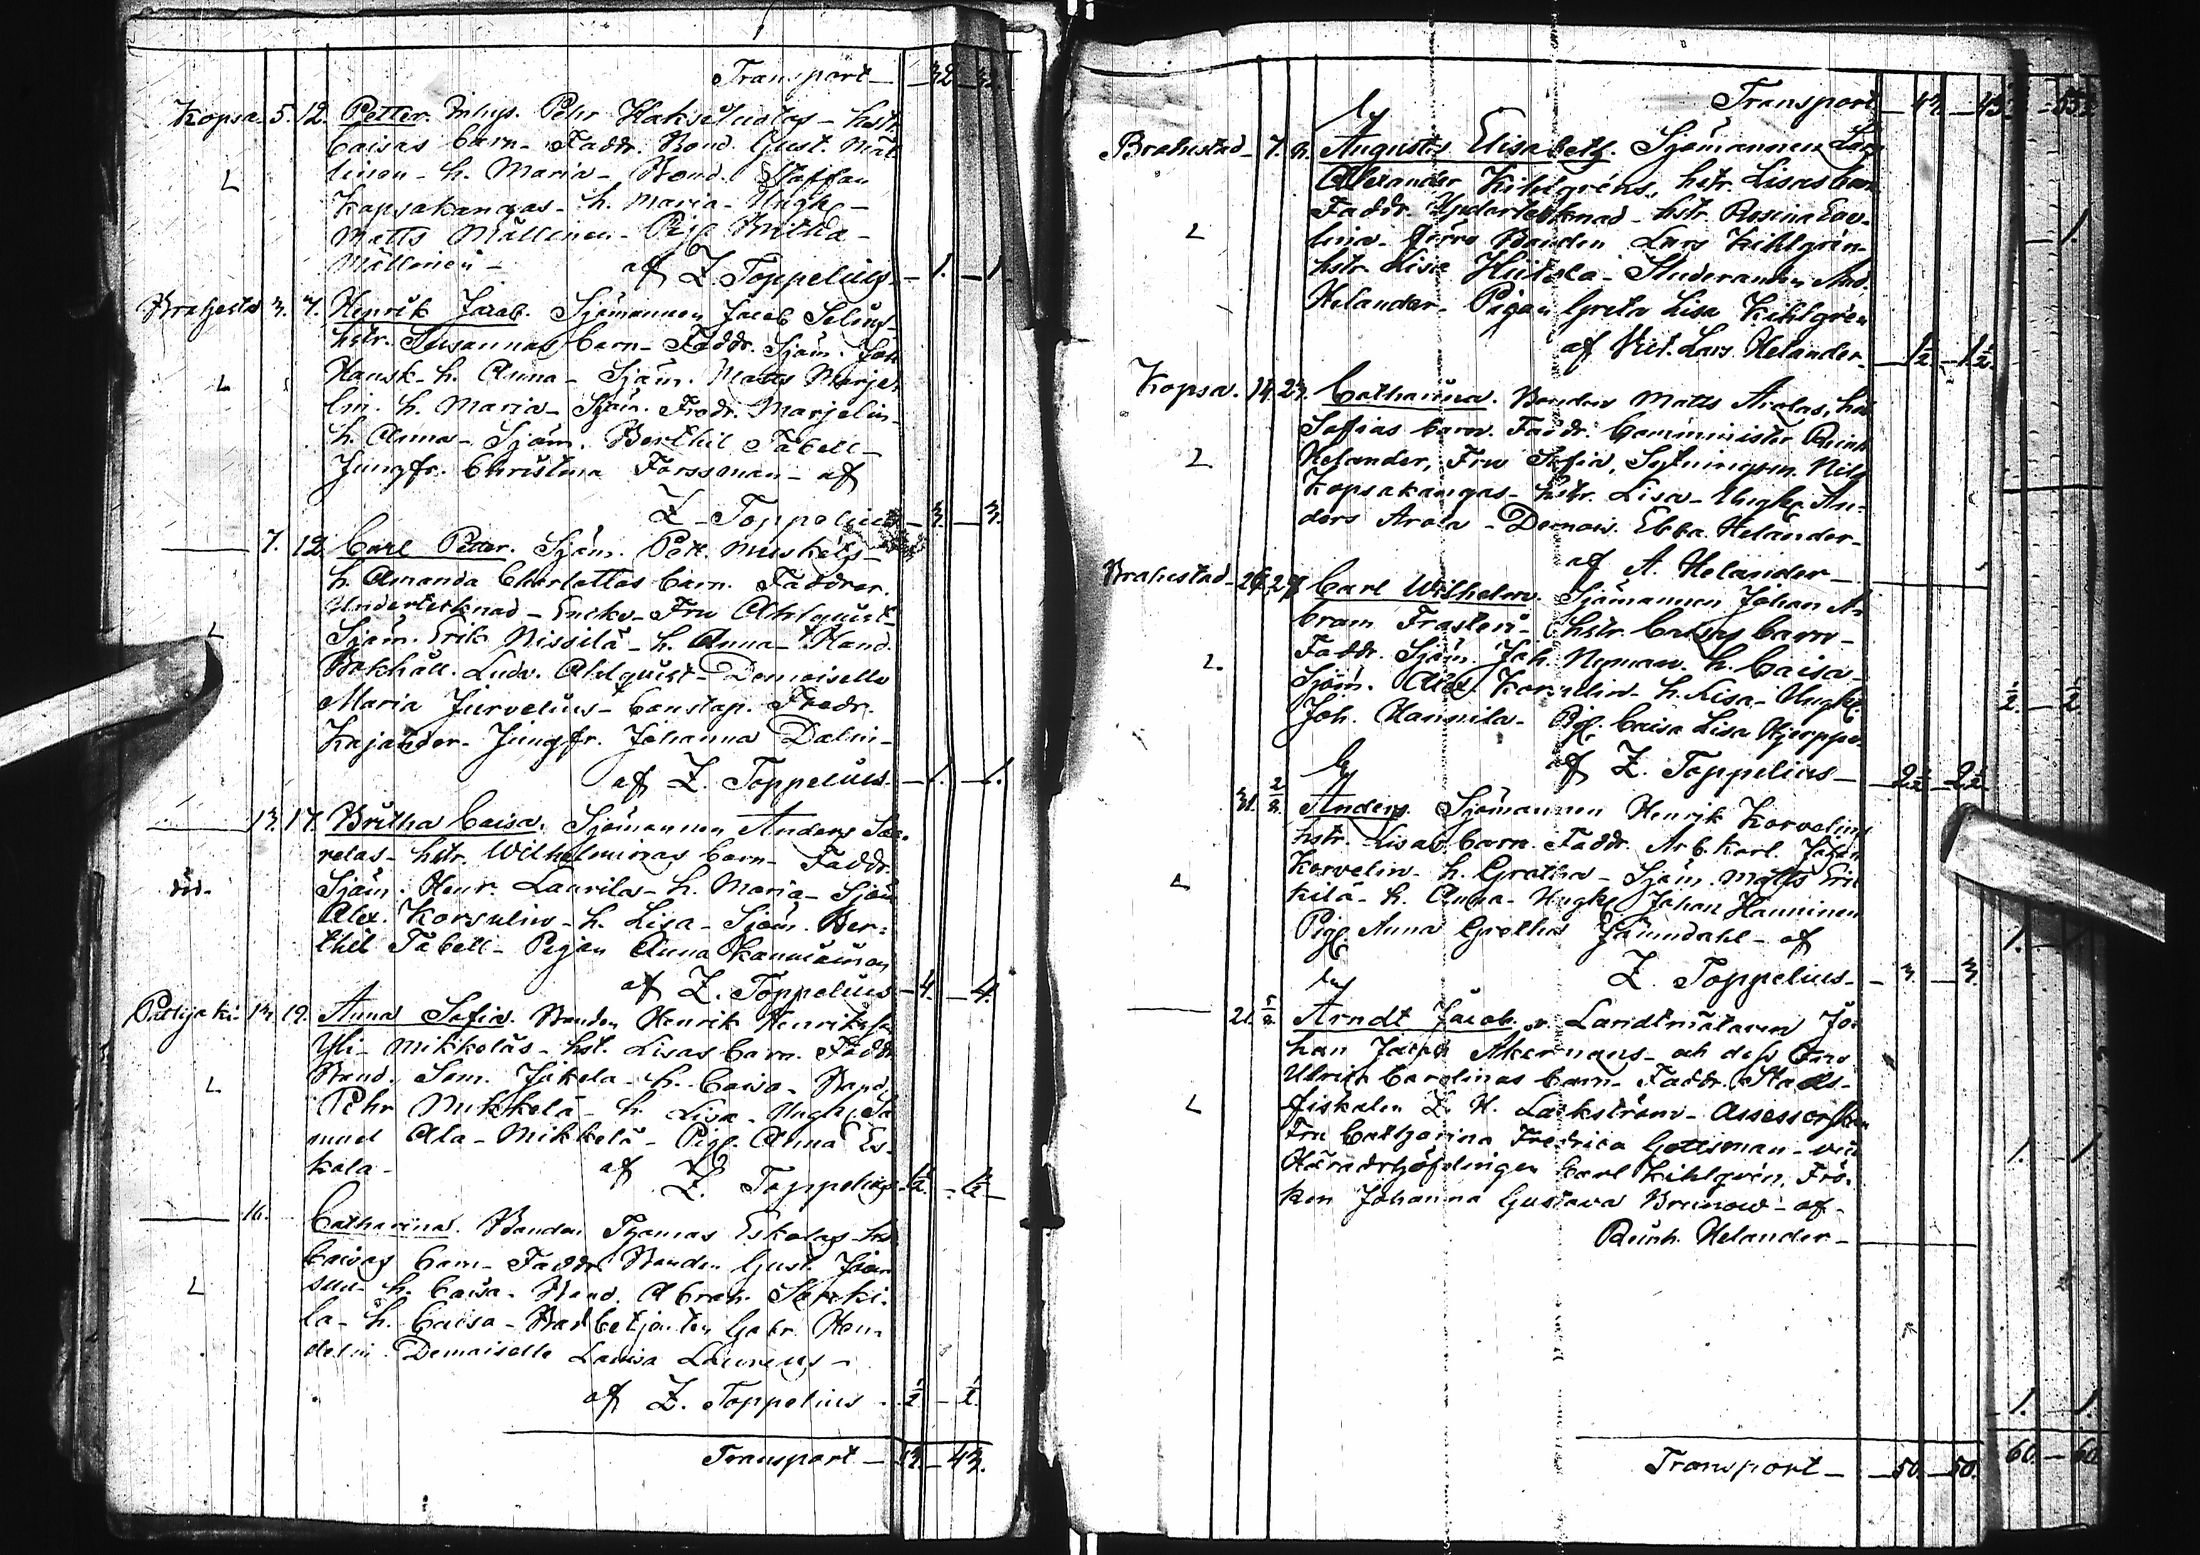 Transport — 32 — 32
Kopsa 5. 12. Petter. Inhys. Pehr Haksiluotos - hstr.
Caisas barn - Faddr. Bond. Gust. Mäl-
L linen - h. Maria - Bond. Staffan
Kopsakangas - h. Maria - Ungk. -
Matts Mällinen - Pig. Britha -
Mällinen - af Z Toppelius - 1. - 1
Brahestad 3. 7. Henrik Jacob. Sjömannen Jacob
hstr. Susannas barn - Faddr. Sjöm. Joh
L Hansk - h. Anna - Sjöm. Matts Marje-
lin. h. Maria - Sjöm. Fredr. Marjelin -
h. Anna - Sjöm. Berthil Tabell -
Jungfr. Christina Forssman - af
Z - Toppelius - 3. - 3.
— 7. 12 Carl Petter. Sjöm. Pett.
h. Amanda Charlottas barn. Faddrar.
Undertecknad - Encke - Fru Ahlquist -
L Sjöm. Erik Nissilä - h. Anna - Hand.
Bokhåll. Ludv. Ahlquist - Demoiselle
Maria Jurvelius - Constap. Fredr.
Kajander - Jungfr. Johanna Dalin -
af Z. Toppelius - 1. - 1.
— 13. 17. Britha Caisa. Sjömannen Anders Saa-
relas - hstr. Wilhelminas barn - Faddr.
död. Sjöm. Henr. Laurila - h. Maria - Sjöm
Alex. Korsulin - h. Lisa - Sjöm. Ber-
thil Tabell - Pigan Anna
af Z. Toppelius - 4. - 4.
Pattijoki 13. 19. Anna Sofia. Bonden Henrik Henriksson
Yli - Mikkoläs - hst. Lisas barn. Faddr
L Bond. Sam. Jokela - h. Caisa - Bond.
Pehr Mikkolä - h. Lisa - Ungk. Sa
muel Ala - Mikkolä - Pig. Anna Es-
kola - af Z. Toppelius - ½. - ½ -
— 16. Catharina. Bonden Thomas Eskolas - hst
Caisas barn - Faddr. Bonden Gust.
L h. Caisa - Bond. Abrah. Särki-
la - h. Caisa - Gabr. Hon-
delin Demoiselle Lovisa Laurens -
af Z. Toppelius - ½ - ½.
Transport - 43. - 43.
Transport — 43 — 43
Brahestad - 7. 8. Augusta Elisabeth. Sjömannen Lars
Alexander Kihlgréns, hstr. Lisas barn
Faddr. Undertecknad - hstr. Rosina
L Bonden Lars Kihlgrén -
hstr. Lisa Hiitola - Studeranden And.
Helander - Pigan Greta Lisa Kihlgrén
af Vict. Lars Helander - 1½ - 1½.
Kopsa. 14. 23. Catharina. Bonden Matts Arolas, hst
Sofias barn. Faddr. Comminister Reinh
L Helander, Fru Sofia, Sytningsm. Nils
Kopsakangas - hstr. Lisa - Ungk. An-
ders Arola - Demois. Ebba Helander -
af A. Helander -
Brahestad - 26. 27 Carl Wilhelm. Sjömannen Johan A-
bram hstr. Caisas barn -
L. Faddr. Sjöm. Joh. Nyman. h. Caisa -
Sjöm. Alex. Korsulin - h. Lisa - Ungk.
Joh. Hannila - Pig. Caisa Lisa Hjerppe
af Z. Toppelius - 2½ - 2½.
31. 2/8. Anders. Sjömannen Henrik Korvelins
hstr. Lisas barn. Faddr. Arb.karl. Johan
L Korvelin - h. Gretha - Sjöm. Matts Erk
kilä - h. Anna - Ungk. Johan Hanninen
Pig. Anna Gretha - af
Z. Toppelius - 3. - 3.
— 21. 5/8. Arndt Jacob. Landtmätaren Jo-
han Jacob Åkermans - och dess Fru
Ulrica Carolinas barn - Faddr. Stads-
L fiskalen Z. H. Lackström - Assessorskan
Fru Catharina Fredrica Gottsman - vice
Häradshöfdingen Carl Kihlgrén, Frö-
ken Johanna Gustava Brunow - af -
Reinh. Helander -
Transport — 50. — 50.